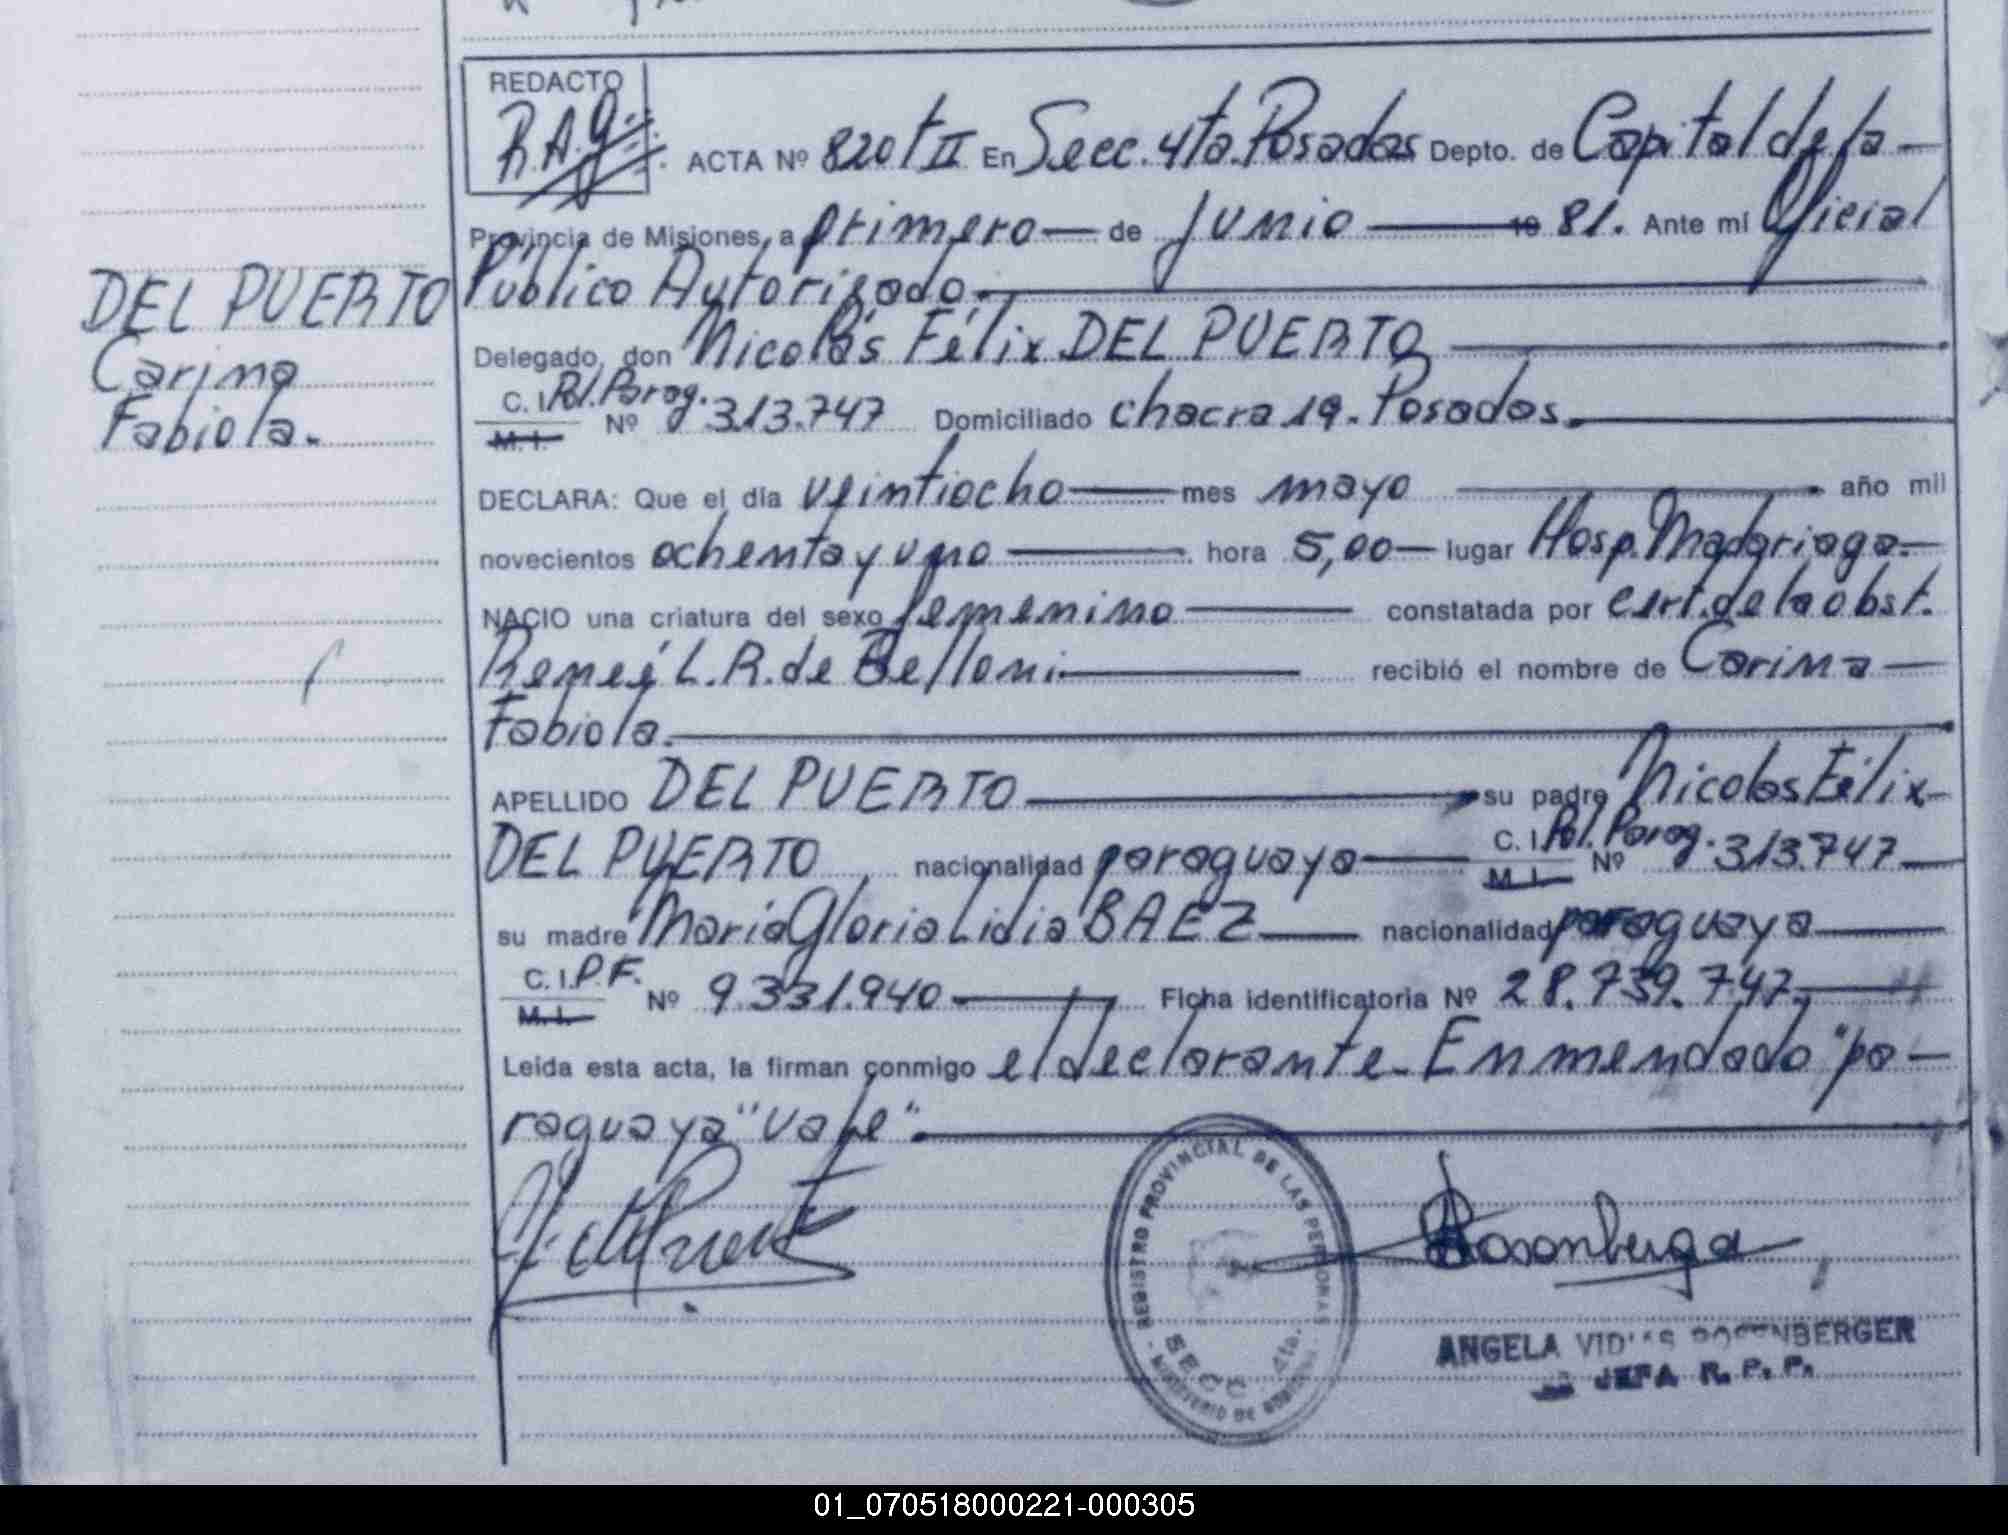 REDACTO
R.A.G.
ACTA Nº 820 t II En Secc. 4ta. Posadas Depto. de Capital de la
Provincia de Misiones, a primero de junio 19 81. Ante mi Oficial
Público Autorizado.
DEL PUERTO
Carina
Fabiola.
Delegado, don Nicolás Félix DEL PUERTO
C. I. Pol. Parag. Nº 313.747 Domiciliado chacra 19. Posadas.
M. I.
DECLARA: Que el día veintiocho mes mayo año mil
novecientos ochenta y uno hora 5,00 lugar Hosp. Madariaga.
NACIO una criatura del sexo femenino constatada por cert. de la obst.
Reneé L. R. de Belloni recibió el nombre de Carina
Fabiola.
APELLIDO DEL PUERTO su padre Nicolas Félix
DEL PUERTO nacionalidad paraguaya C. I. Pol. Parag. Nº 313.747
M. I.
su madre María Gloria Lidia BAEZ nacionalidad paraguaya
C. I. P.F. Nº 9.331.940 Ficha identificatoria Nº 28.739.747.
M. I.
Leída esta acta, la firman conmigo el declarante. Enmendado "pa-
raguaya" vale".
REGISTRO PROVINCIAL DE LAS PERSONAS
SECC 4ta.
MINISTERIO DE GOBIERNO
Rosenberger
ANGELA ROSENBERGER
JEFA R. P. P.
01_070518000221-000305